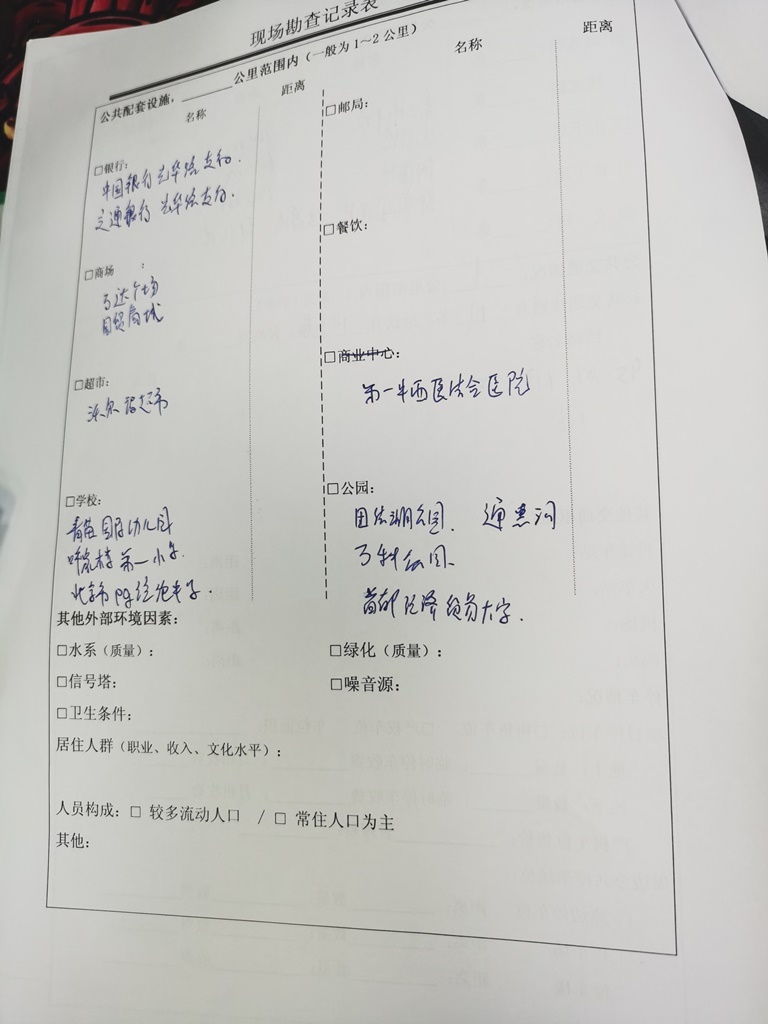 现场勘查记录表
公共配套设施，______公里范围内（一般为1～2公里）
名称 距离
名称 距离
□银行：
中国银行光华路支行.
交通银行 光华路支行.
□商场 ：
万达广场
国贸商城
□超市：
沃尔玛超市
□学校：
青苗国际幼儿园
呼家楼第一小学.
北京市陈经纶中学.
□邮局：
□餐饮：
□商业中心：
第一中西医结合医院
□公园：
团结湖公园、 通惠河
公园、
首都经济贸易大学.
其他外部环境因素：
□水系（质量）： □绿化（质量）：
□信号塔： □噪音源：
□卫生条件：
居住人群（职业、收入、文化水平）：
人员构成：□ 较多流动人口 / □ 常住人口为主
其他：